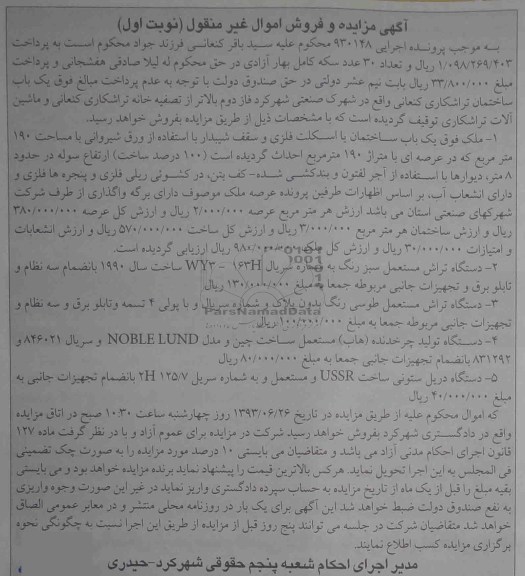 آگهی مزایده و فروش اموال غیر منقول (نوبت اول)
به موجب پرونده اجرایی ۹۳۰۱۴۸ محکوم علیه سید باقر کنعانی فرزند جواد محکوم است به پرداخت
۱/۰۹۸/۲۶۹/۴۰۳ ریال و تعداد ۳۰ عدد سکه کامل بهار آزادی در حق محکوم له لیلا صادقی هفشجانی و پرداخت
مبلغ ۳۳/۸۰۰/۰۰۰ ریال بابت نیم عشر دولتی در حق صندوق دولت با توجه به عدم پرداخت مبالغ فوق یک باب
ساختمان تراشکاری کنعانی واقع در شهرک صنعتی شهرکرد فاز دوم بالاتر از تصفیه خانه تراشکاری کنعانی و ماشین
آلات تراشکاری توقیف گردیده است که با مشخصات ذیل از طریق مزایده بفروش خواهد رسید.
۱- ملک فوق یک باب ساختمان با اسکلت فلزی و سقف شیبدار با استفاده از ورق شیروانی با مساحت ۱۹۰
متر مربع که در عرصه ای با متراژ ۱۹۰ مترمربع احداث گردیده است (۱۰۰ درصد ساخت) ارتفاع سوله در حدود
۸ متر، دیوارها با استفاده از آجر لفتون و بندکشی شده- کف بتن، در کشوئی ریلی فلزی و پنجره ها فلزی و
دارای انشعاب آب، بر اساس اظهارات طرفین پرونده عرصه ملک موصوف دارای برگه واگذاری از طرف شرکت
شهرکهای صنعتی استان می باشد ارزش هر متر مربع عرصه ۲/۰۰۰/۰۰۰ ریال و ارزش کل عرصه ۳۸۰/۰۰۰/۰۰۰
ریال و ارزش ساختمان هر متر مربع ۳/۰۰۰/۰۰۰ ریال و ارزش کل ساخت ۵۷۰/۰۰۰/۰۰۰ ریال و ارزش انشعابات
و امتیازات ۳۰/۰۰۰/۰۰۰ ریال و ارزش کل ملک ۹۸۰/۰۰۰/۰۰۰ ریال ارزیابی گردیده است.
۲- دستگاه تراش مستعمل سبز رنگ به شماره سریال ۱۶۳H - WY۳ ساخت سال ۱۹۹۰ بانضمام سه نظام و
تابلو برق و تجهیزات جانبی مربوطه جمعا به مبلغ ۱۳۰/۰۰۰/۰۰۰ ریال
۳- دستگاه تراش مستعمل طوسی رنگ بدون پلاک و شماره سریال و با پولی ۴ تسمه وتابلو برق و سه نظام و
تجهیزات جانبی مربوطه جمعا به مبلغ ۱۰۰/۰۰۰/۰۰۰ ریال
ParsNamadData
۴- دستگاه تولید چرخدنده (هاب) مستعمل ساخت چین و مدل NOBLE LUND و سریال ۸۴۶۰۲۱ و
۸۳۱۲۹۲ بانضمام تجهیزات جانبی جمعا به مبلغ ۸۰/۰۰۰/۰۰۰ ریال
۵- دستگاه دریل ستونی ساخت USSR و مستعمل و به شماره سریل ۲H ۱۲۵/۷ بانضمام تجهیزات جانبی به
مبلغ ۴۰/۰۰۰/۰۰۰ ریال
که اموال محکوم علیه از طریق مزایده در تاریخ ۱۳۹۳/۰۶/۲۶ روز چهارشنبه ساعت ۱۰:۳۰ صبح در اتاق مزایده
واقع در دادگستری شهرکرد بفروش خواهد رسید شرکت در مزایده برای عموم آزاد و با در نظر گرفت ماده ۱۲۷
قانون اجرای احکام مدنی آزاد می باشد و متقاضیان می بایستی ۱۰ درصد مورد مزایده را به صورت چک تضمینی
فی المجلس به این اجرا تحویل نماید. هرکس بالاترین قیمت را پیشنهاد نماید برنده مزایده خواهد بود و می بایستی
بقیه مبلغ را قبل از یک ماه از تاریخ مزایده به حساب سپرده دادگستری واریز نماید در غیر این صورت وجوه واریزی
به نفع صندوق دولت ضبط خواهد شد این آگهی برای یک بار در روزنامه محلی منتشر و در معابر عمومی الصاق
خواهد شد متقاضیان شرکت در جلسه می توانند پنج روز قبل از مزایده از طریق این اجرا نسبت به چگونگی نحوه
برگزاری مزایده کسب اطلاع نمایند.
مدیر اجرای احکام شعبه پنجم حقوقی شهرکرد-حیدری